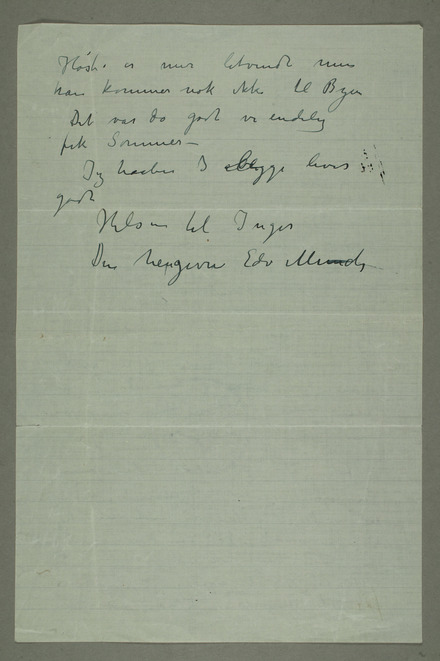 Høst. er mer letvindt men
han kommer nok ikke til Byen
Det var da godt vi endelig
fik Sommer –
Jeg haaber I begge lever
godt
Hilsen til Inger
Din hengivne Edv Munch